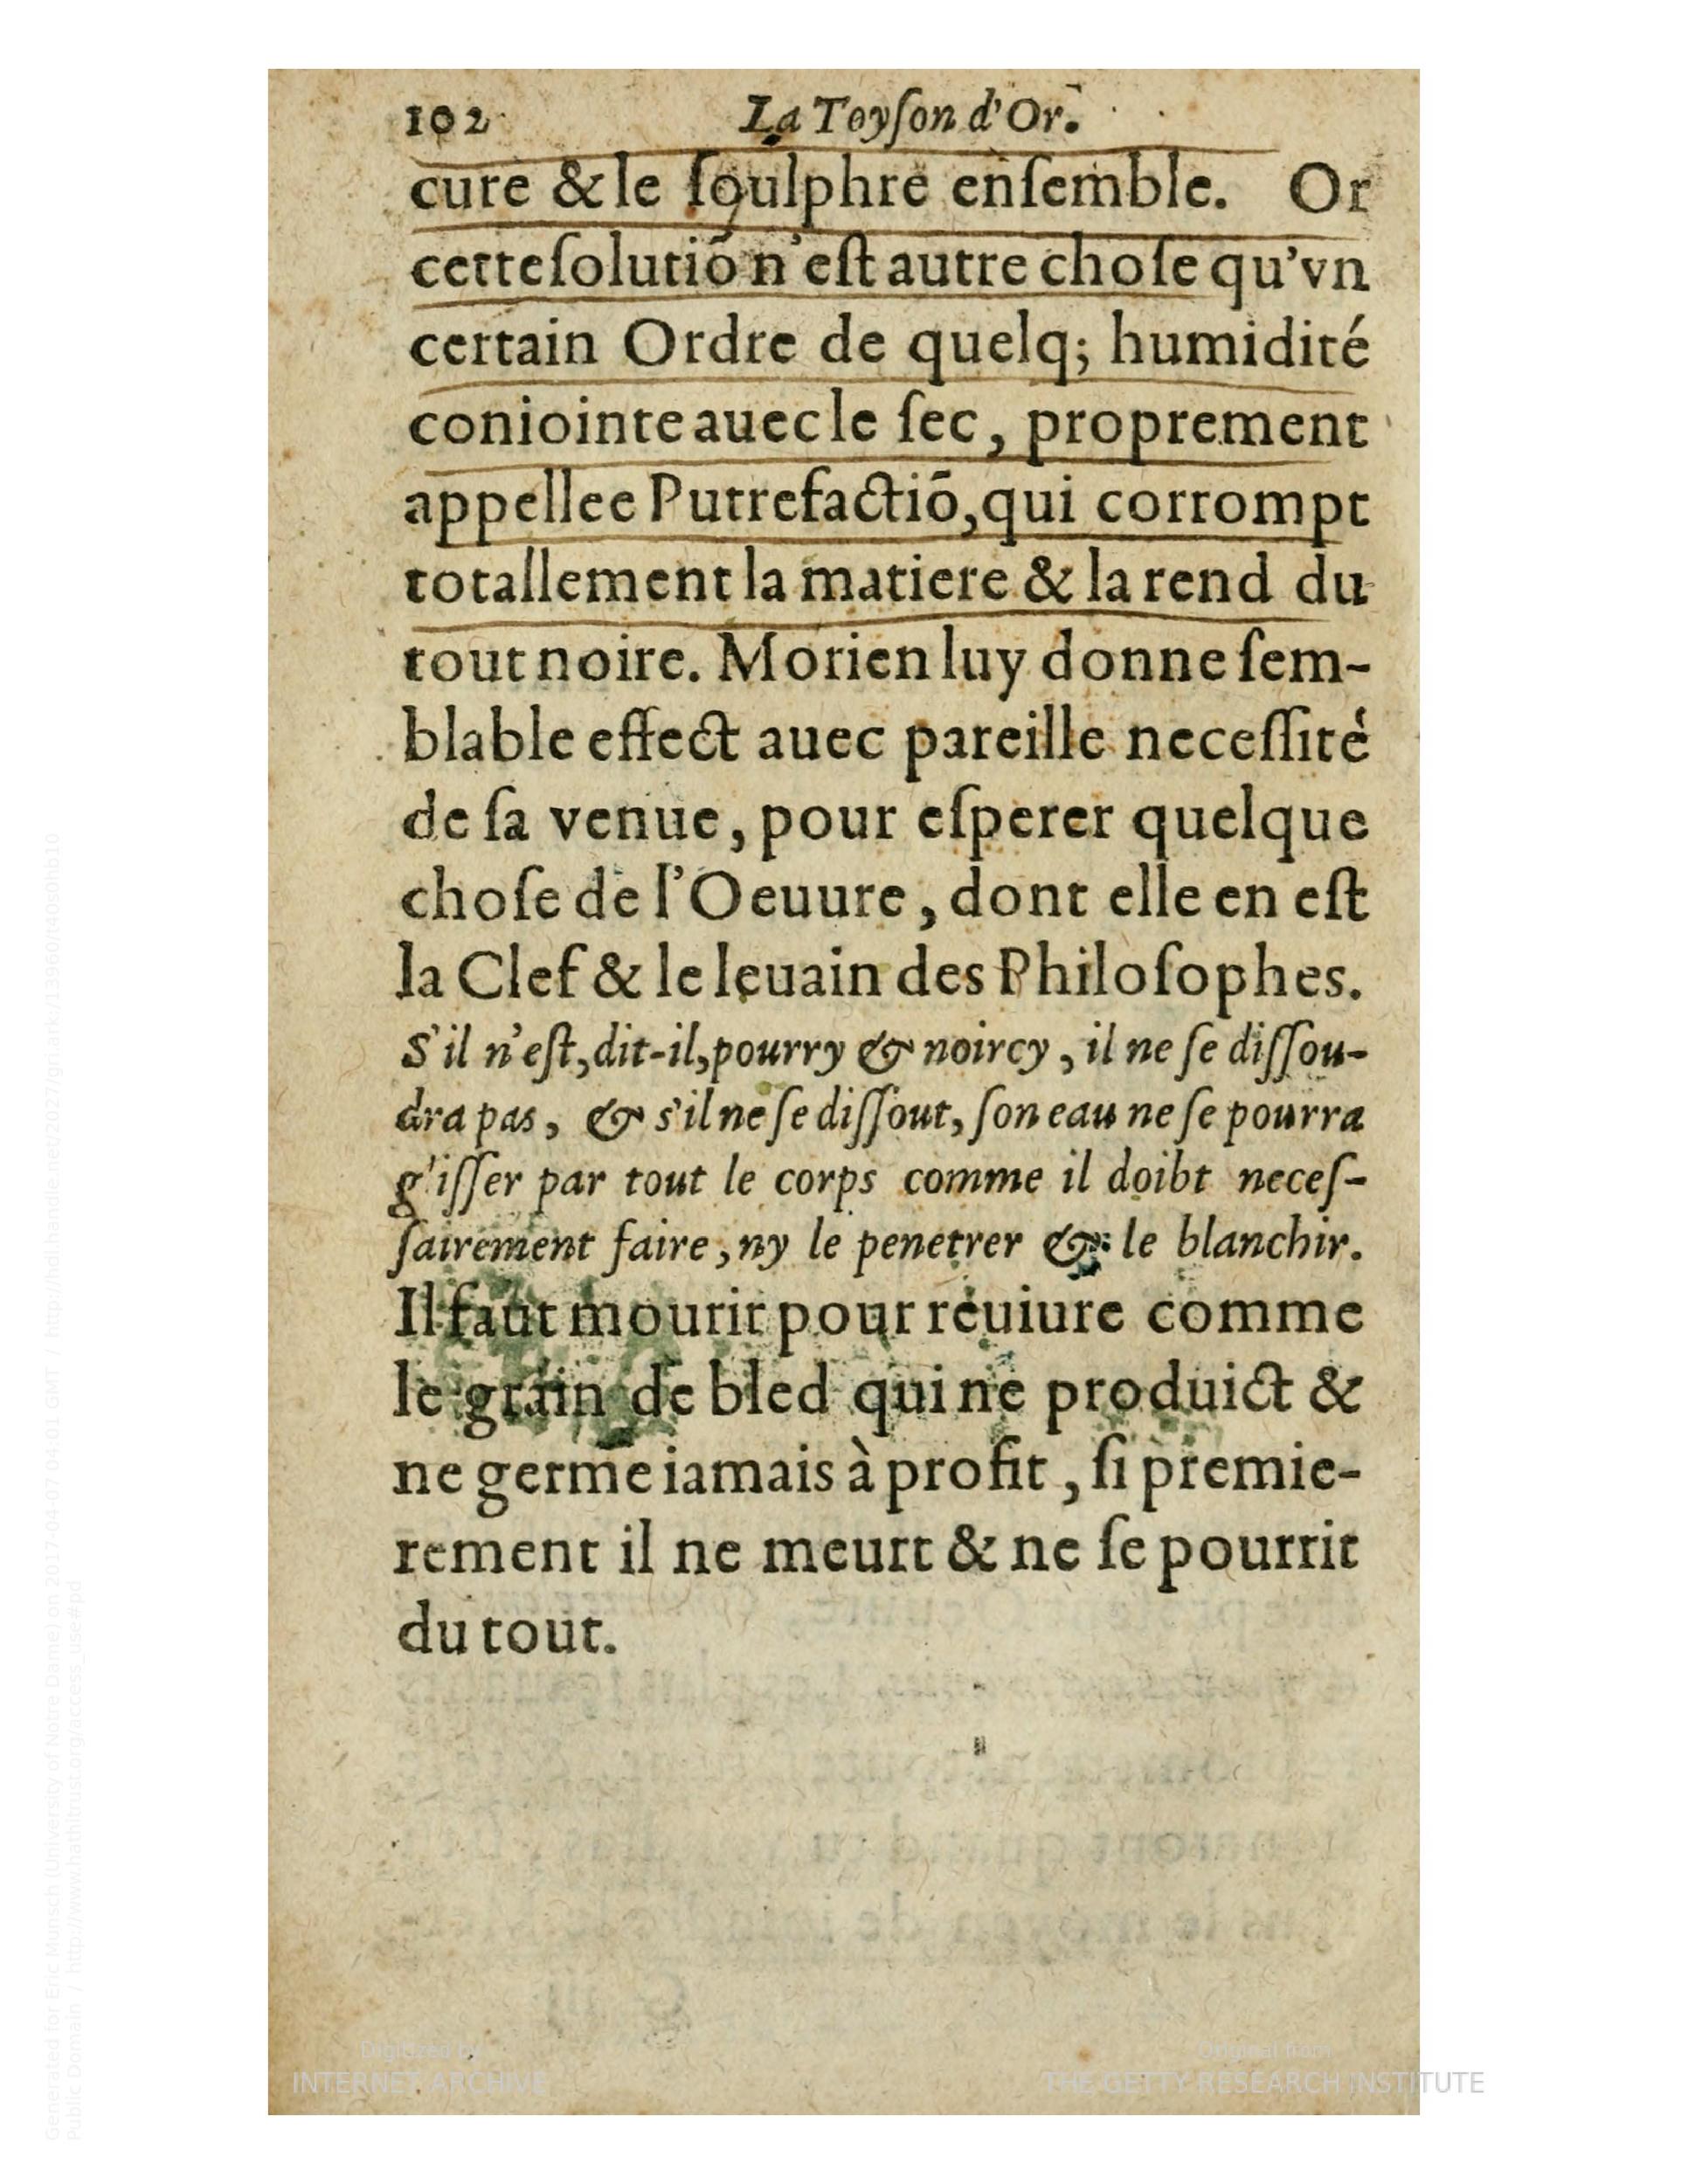 102 La Toyſon d'Or.
cure & le ſoulphre enſemble. Or
cette ſolutiō n'eſt autre choſe qu'vn
certain Ordre de quelq; humidité
coniointe auec le ſec, proprement
appellee Putrefactiō, qui corrompt
totallement la matiere & la rend du
tout noire. Morien luy donne ſem-
blable effect auec pareille neceſſité
de ſa venue, pour eſperer quelque
choſe de l'Oeuure, dont elle en eſt
la Clef & le leuain des Philoſophes.
S'il n'eſt, dit-il, pourry & noircy, il ne ſe diſſou-
dra pas, & s'il ne ſe diſſout, ſon eau ne ſe pourra
g'iſſer par tout le corps comme il doibt neceſ-
ſairement faire, ny le penetrer & le blanchir.
Il faut mourir pour reuiure comme
le grain de bled qui ne produict &
ne germe iamais à profit, ſi premie-
rement il ne meurt & ne ſe pourrit
du tout.
Generated for Eric Munsch (University of Notre Dame) on 2017-04-07 04:01 GMT / http://hdl.handle.net/2027/gri.ark:/13960/t40s0hb10
Public Domain / http://www.hathitrust.org/access_use#pd
Digitized by
INTERNET ARCHIVE
Original from
THE GETTY RESEARCH INSTITUTE